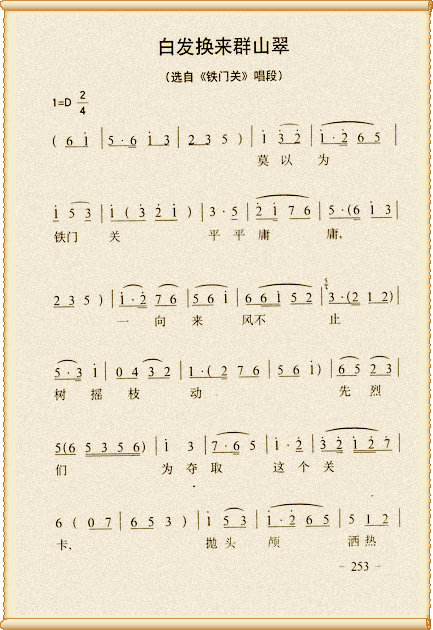 白发换来群山翠
（选自《铁门关》唱段）
1=D 2/4
( 6 i | 5·6 i 3 | 2 3 5 ) | i 3 2 | i·2 6 5 |
莫 以 为
i 5 3 | i ( 3 2 i ) | 3·5 | 2 i 7 6 | 5·(6 i 3 |
铁门 关 平 平 庸 庸，
2 3 5 ) | i·2 7 6 | 5 6 i | 6 6 i 5 2 | 3·(2 1 2) |
一 向 来 风不 止
5·3 i | 0 4 3 2 | 1·( 2 7 6 | 5 6 i ) | 6 5 2 3 |
树 摇 枝 动 先 烈
5(6 5 3 5 6) | i 3 | 7·6 5 | i·2 | 3 2 i 2 7 |
们 为 夺 取 这 个 关
6 ( 0 7 | 6 5 3 ) | i 5 3 | i·2 6 5 | 5 1 2 |
卡， 抛 头 颅 洒 热
- 253 -